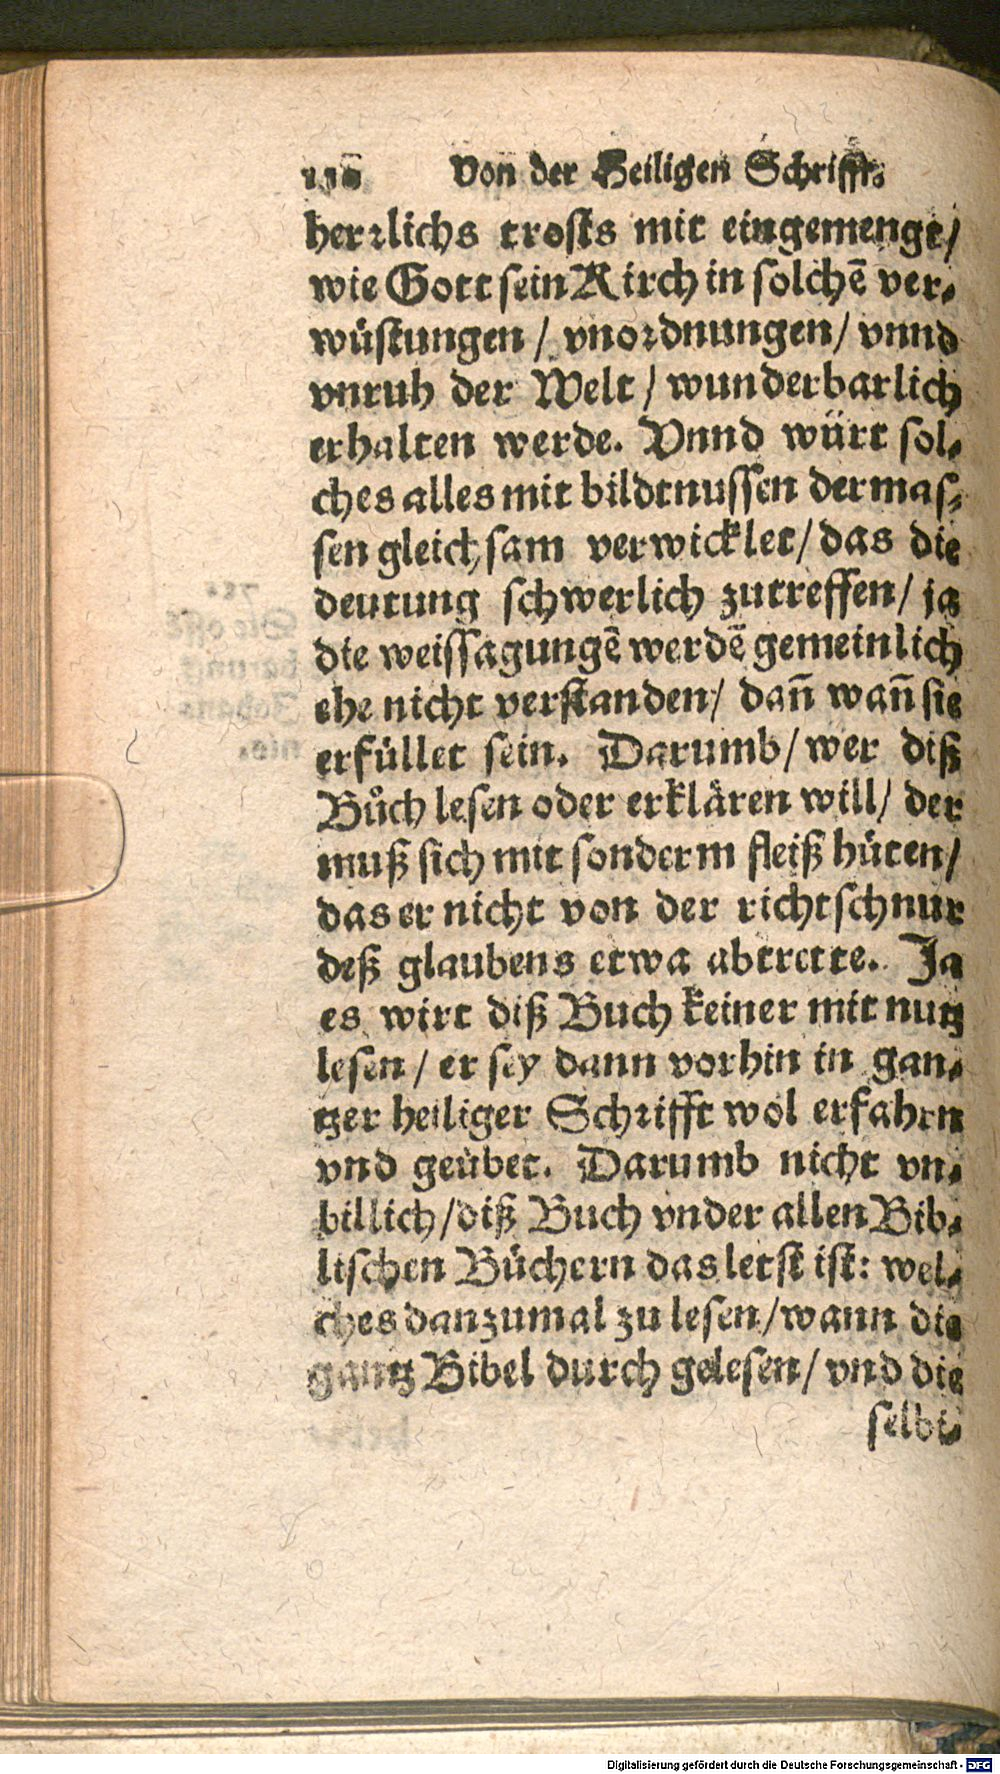 Von der Heiligen Schrifft.
herrlichs trosts mit eingemengt/
wie Gott sein Kirch in solchē ver-
wüstungen / vnordnungen / vnnd
vnruh der Welt / wunderbarlich
erhalten werde. Vnnd würt sol-
ches alles mit bildtnussen dermas-
sen gleichsam verwicklet / das die
deutung schwerlich zutreffen / ja
die weissagungē werdē gemeinlich
ehe nicht verstanden / dan̄ wan̄ sie
erfüllet sein. Darumb / wer diß
Bůch lesen oder erklären will / der
muß sich mit sonderm fleiß hüten /
das er nicht von der richtschnur
deß glaubens etwa abtrette. Ja
es wirt diß Buch keiner mit nutz
lesen / er sey dann vorhin in gan-
tzer heiliger Schrifft wol erfahrn
vnd geübet. Darumb nicht vn-
billich / diß Buch vnder allen Bib-
lischen Büchern das letst ist: wel-
ches danzumal zu lesen / wann die
gantz Bibel durch gelesen / vnd die
selbi-
Digitalisierung gefördert durch die Deutsche Forschungsgemeinschaft - DFG